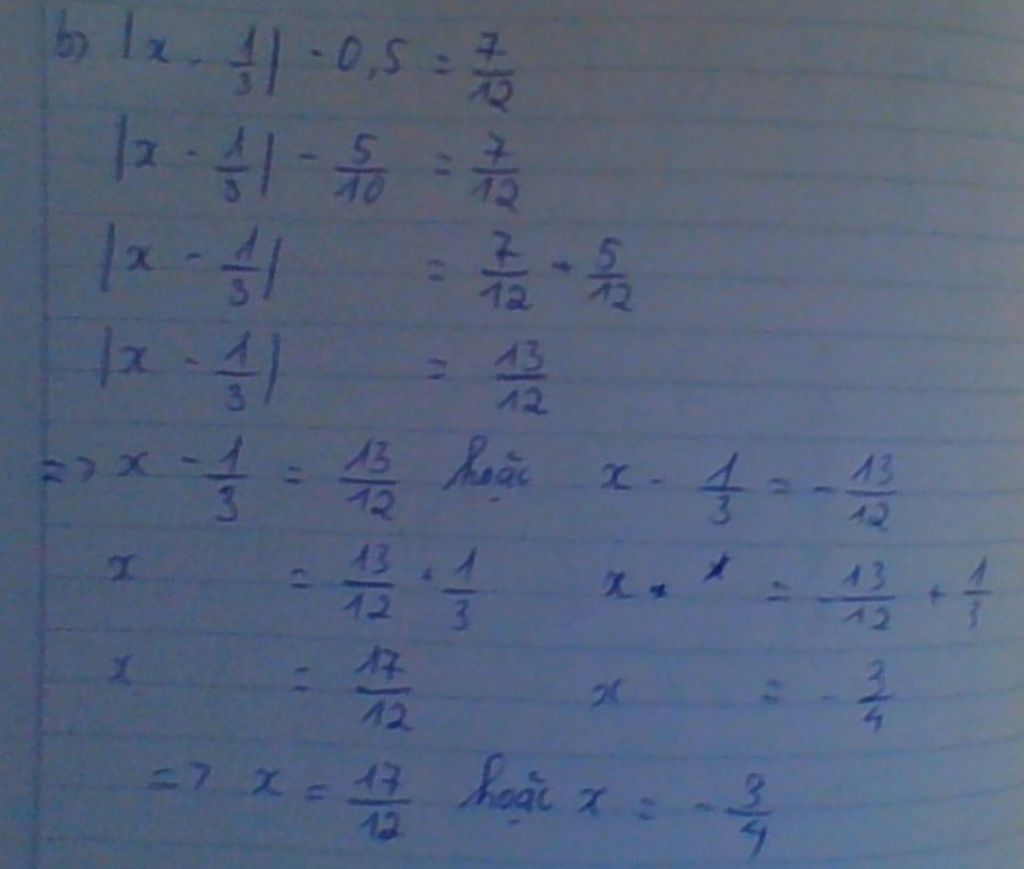 b) |x - 1/3| - 0,5 = 7/12
|x - 1/3| - 5/10 = 7/12
|x - 1/3| = 7/12 + 5/12
|x - 1/3| = 13/12
=> x - 1/3 = 13/12 hoặc x - 1/3 = - 13/12
x = 13/12 + 1/3 x = - 13/12 + 1/3
x = 17/12 x = - 3/4
=> x = 17/12 hoặc x = - 3/4